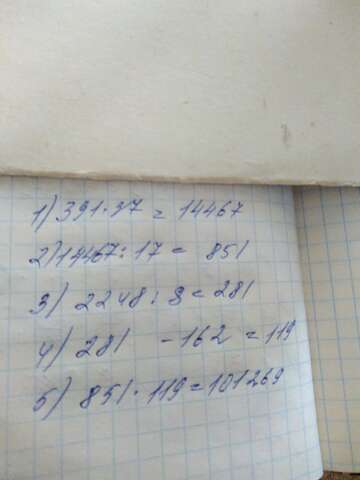 1) 391·37 = 14467
2) 14467:17 = 851
3) 2248:8 = 281
4) 281 - 162 = 119
5) 851·119 = 101269